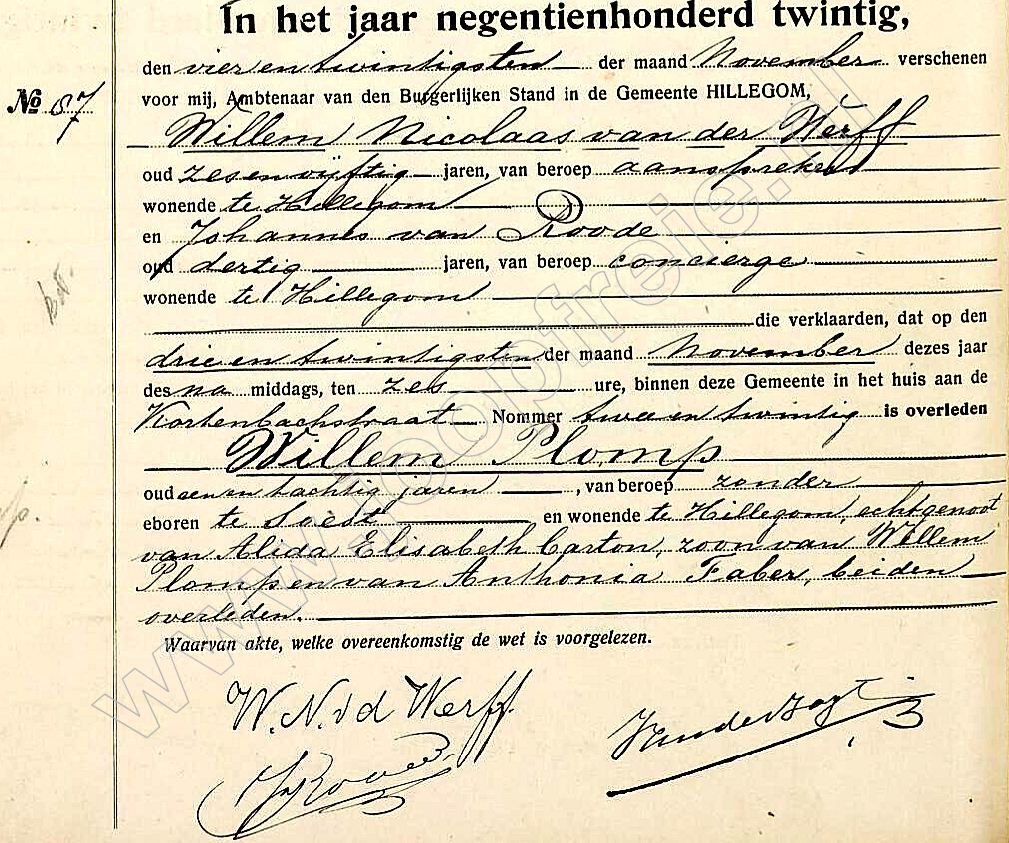 In het jaar negentienhonderd twintig,
den vier en twintigsten der maand November verschenen
No 87
voor mij, Ambtenaar van den Burgerlijken Stand in de Gemeente HILLEGOM,
Willem Nicolaas van der Werff
oud zes en vijftig jaren, van beroep aanspreker
wonende te Hillegom
en Johannes van Roode
oud dertig jaren, van beroep concierge
wonende te Hillegom
die verklaarden, dat op den
drie en twintigsten der maand November dezes jaar
des na middags, ten zes ure, binnen deze Gemeente in het huis aan de
Kortenbachstraat Nommer twee en twintig is overleden
Willem Plomp
oud een en tachtig jaren, van beroep zonder
eboren te Soest en wonende te Hillegom, echtgenoot
van Alida Elisabeth Carton, zoon van Willem
Plomp en van Anthonia Faber, beiden
overleden.
Waarvan akte, welke overeenkomstig de wet is voorgelezen.
W. N. v d Werff.
www.loopfreie.nl